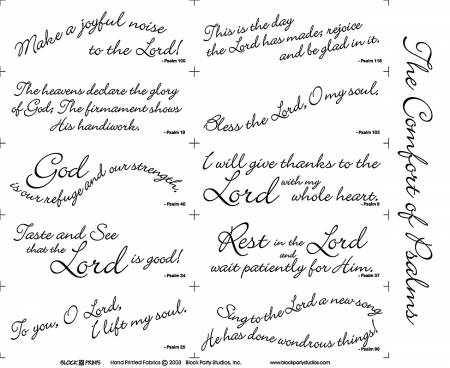 Make a joyful noise
to the Lord!
- Psalm 100
This is the day
the Lord has made; rejoice
and be glad in it.
- Psalm 118
The heavens declare the glory
of God; The firmament shows
His handiwork.
- Psalm 19
Bless the Lord, O my soul.
- Psalm 103
God
is our refuge and our strength.
- Psalm 46
I will give thanks to the
Lord with my
whole heart.
- Psalm 9
Taste and See
that the
Lord is good!
- Psalm 34
Rest in the Lord
and
wait patiently for Him.
- Psalm 37
To you, O Lord,
I lift my soul.
- Psalm 25
Sing to the Lord a new song
He has done wondrous things
- Psalm 98
The Comfort of Psalms
BLOCK PRINTS Hand Printed Fabrics © 2003 Block Party Studios, Inc. www.blockpartystudios.com